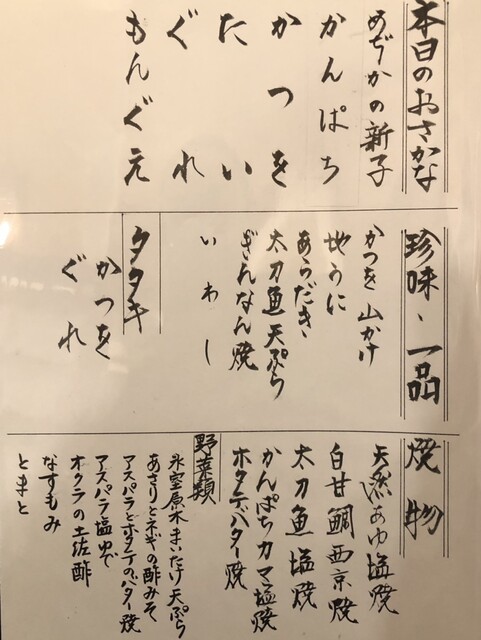 本日のおさかな
めぢかの新子
かんぱち
かつを
たい
ぐれ
もんぐえ
珍味、一品
かつを山かけ
地うに
あらだき
太刀魚天ぷら
ぎんなん焼
いわし
タタキ
かつを
ぐれ
焼物
天然あゆ塩焼
白甘鯛西京焼
太刀魚塩焼
かんぱちカマ塩焼
ホタテバター焼
野菜類
氷室原木まいたけ天ぷら
あさりとネギの酢みそ
アスパラとホタテのバター焼
アスパラ塩ゆで
オクラの土佐酢
なすもみ
とまと